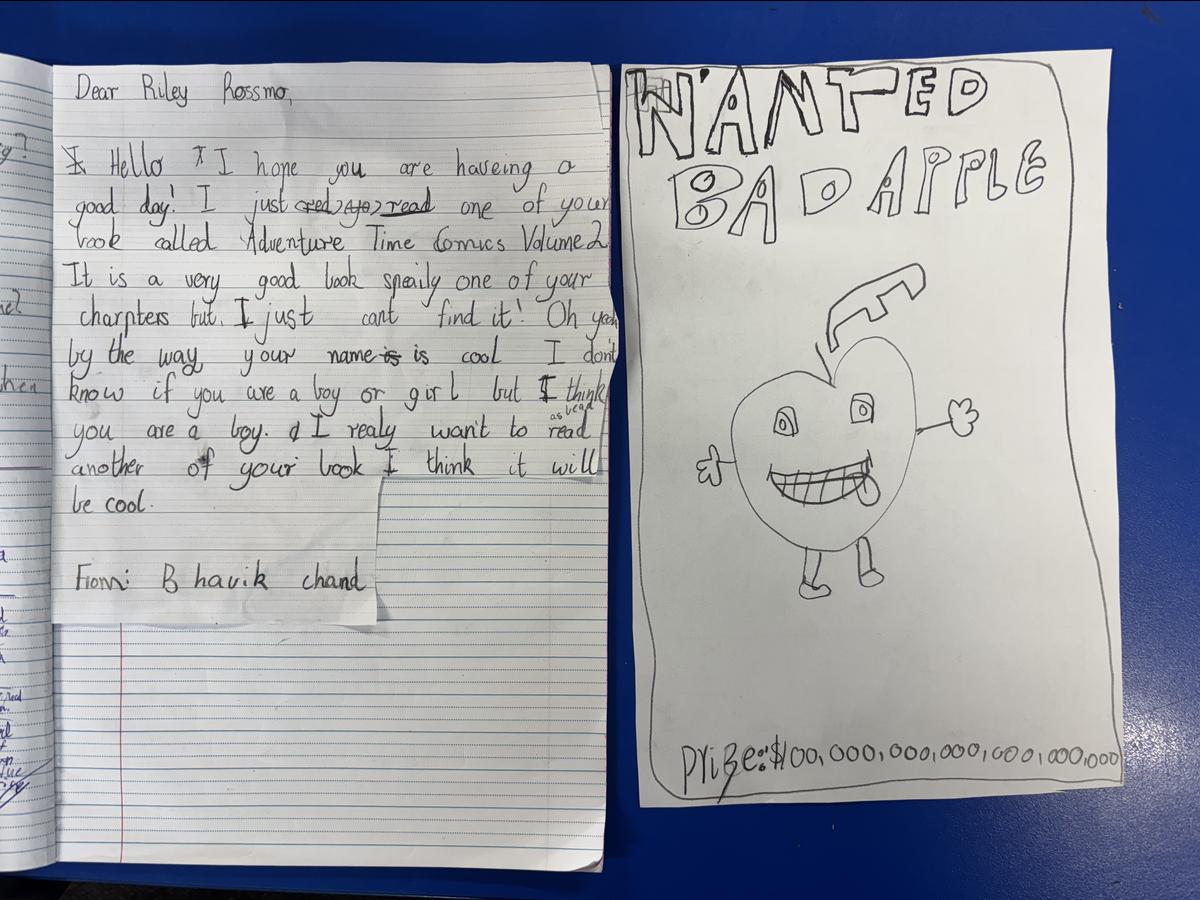 Dear Riley Rossmo,
Hello I hope you are haveing a
good day! I just read one of your
book called Adventure Time Comics Volume 2
It is a very good book speaily one of your
charpters but. I just cant find it! Oh yeah
by the way your name is is cool I don't
know if you are a boy or girl but I think
you are a boy. I realy want to read
as lead
another of your book I think it will
be cool.
From: Bhavik chand
WANTED
BAD APPLE
priBe: $100,000,000,000,000,000,000
y?
hen